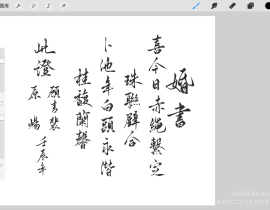 婚書
喜今日赤繩繫定
珠聯璧合
卜他年白頭永偕
桂馥蘭馨
此證
顧青裴
原 煬
壬辰年